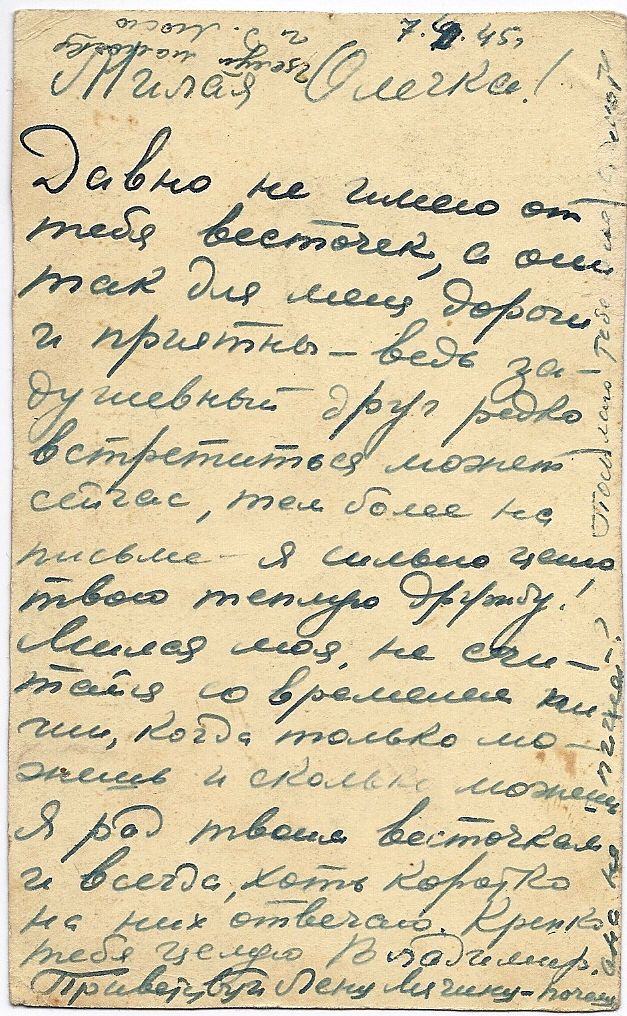 7. 45
Милая Олечка!
Давно не имею от
тебя весточек, а они
так для меня дороги
и приятны – ведь за-
душевный друг редко
встретиться может
сейчас, тем более на
письме – я сильно ценю
твою теплую дружбу!
Милая моя, не счи-
тайся со временем пи-
ши, когда только мо-
жешь и сколько можешь
Я рад твоим весточкам
и всегда, хоть коротко
на них отвечаю. Крепко
тебя целую Владимир.
Приветствуй Лену Мячину – почему
она не пишет?
Посылаю тебе
целуй мамочку
и д. Люсю